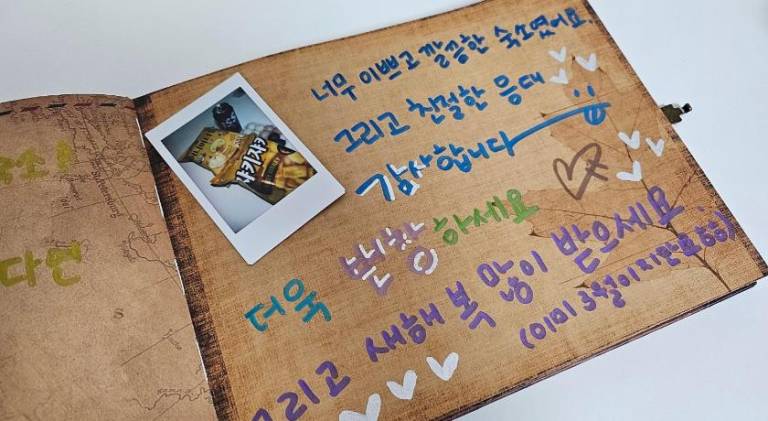 다면
너무 이쁘고 깔끔한 숙소였어요.
그리고 친절한 응대
감사합니다
더욱 번창하세요
그리고 새해 복 많이 받으세요
(이미 3월이지만요ㅎㅎ)